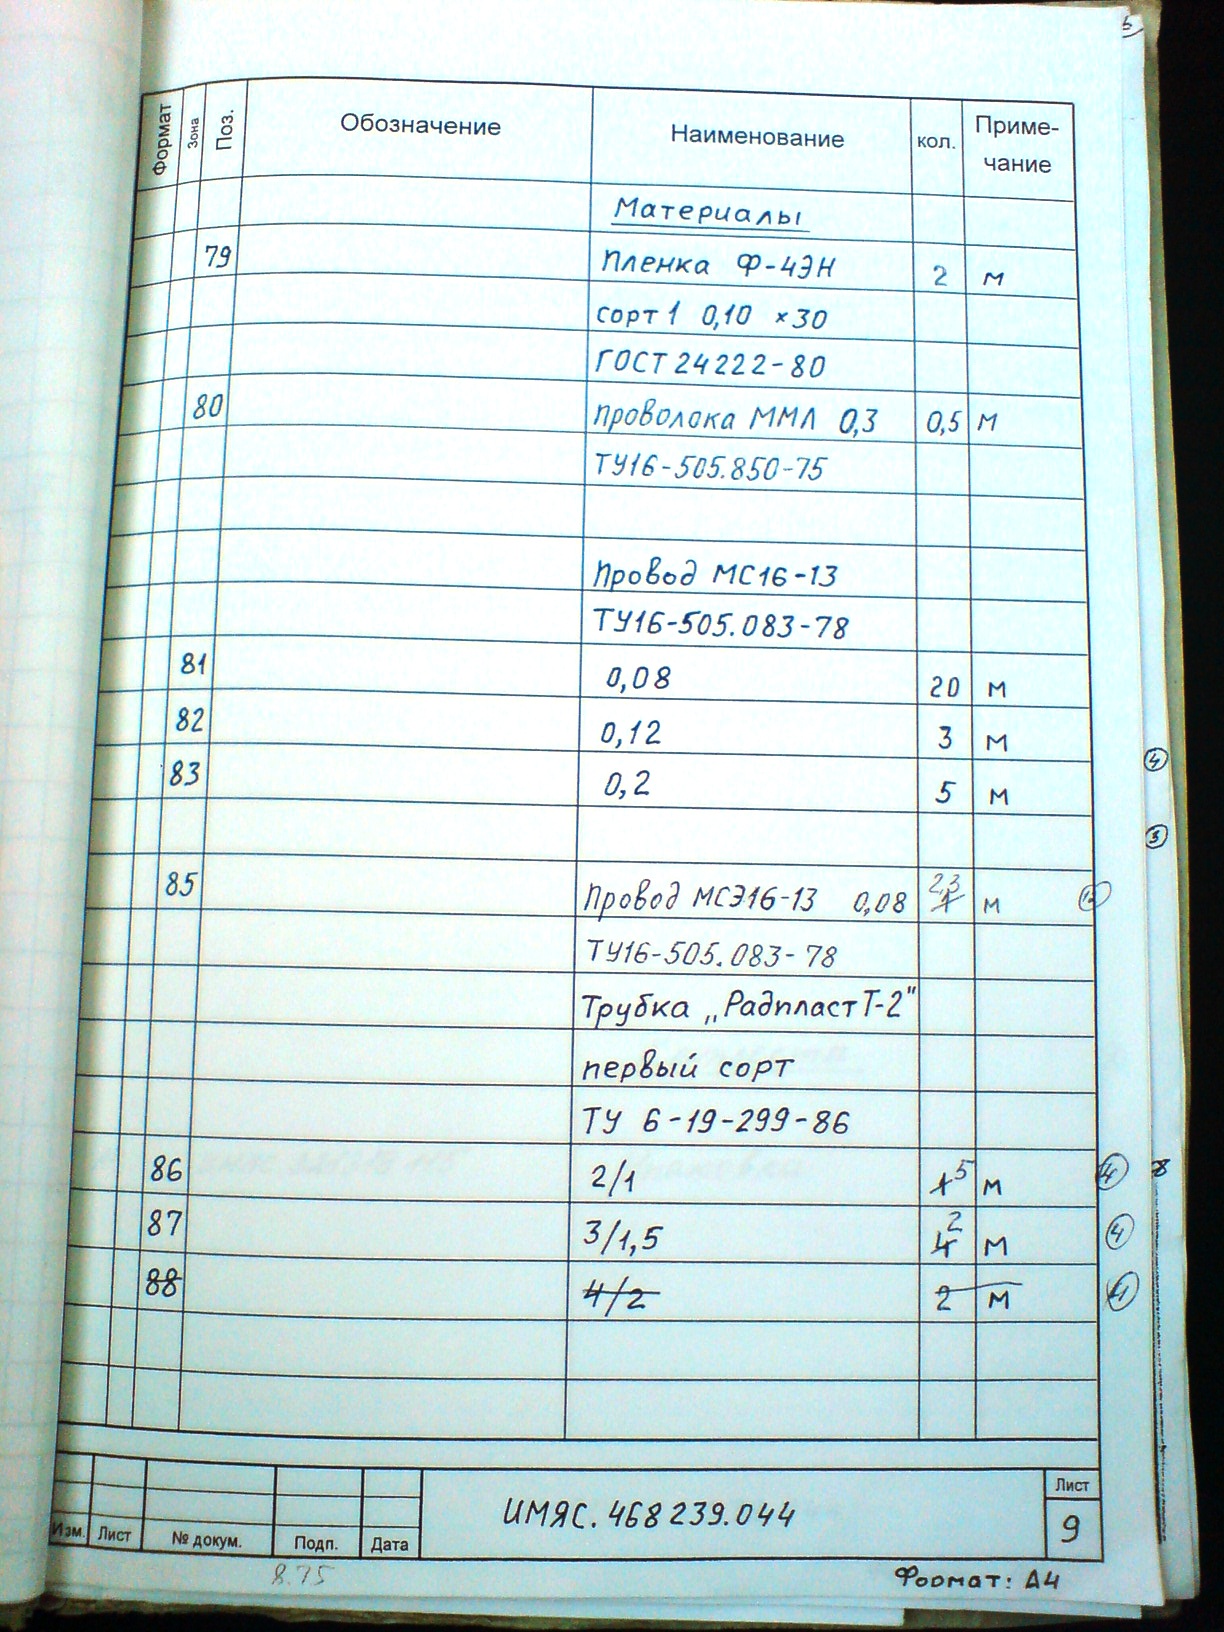 Формат Зона Поз. Обозначение Наименование кол. Приме-
чание
Материалы
79 Пленка Ф-4ЭН 2 м
сорт 1 0,10 ×30
ГОСТ 24222-80
80 Проволока ММЛ 0,3 0,5 м
ТУ16-505.850-75
Провод МС16-13
ТУ16-505.083-78
81 0,08 20 м
82 0,12 3 м
83 0,2 5 м
4
3
85 Провод МСЭ16-13 0,08 2,3 1 м
ТУ16-505.083-78
Трубка „Радпласт Т-2"
первый сорт
ТУ 6-19-299-86
86 2/1 1 5 м 4 8
87 3/1,5 2 4 м 4
88 4/2 2 м 4
Изм. Лист № докум. Подп. Дата ИМЯС.468239.044 Лист
9
8.75 Формат: А4